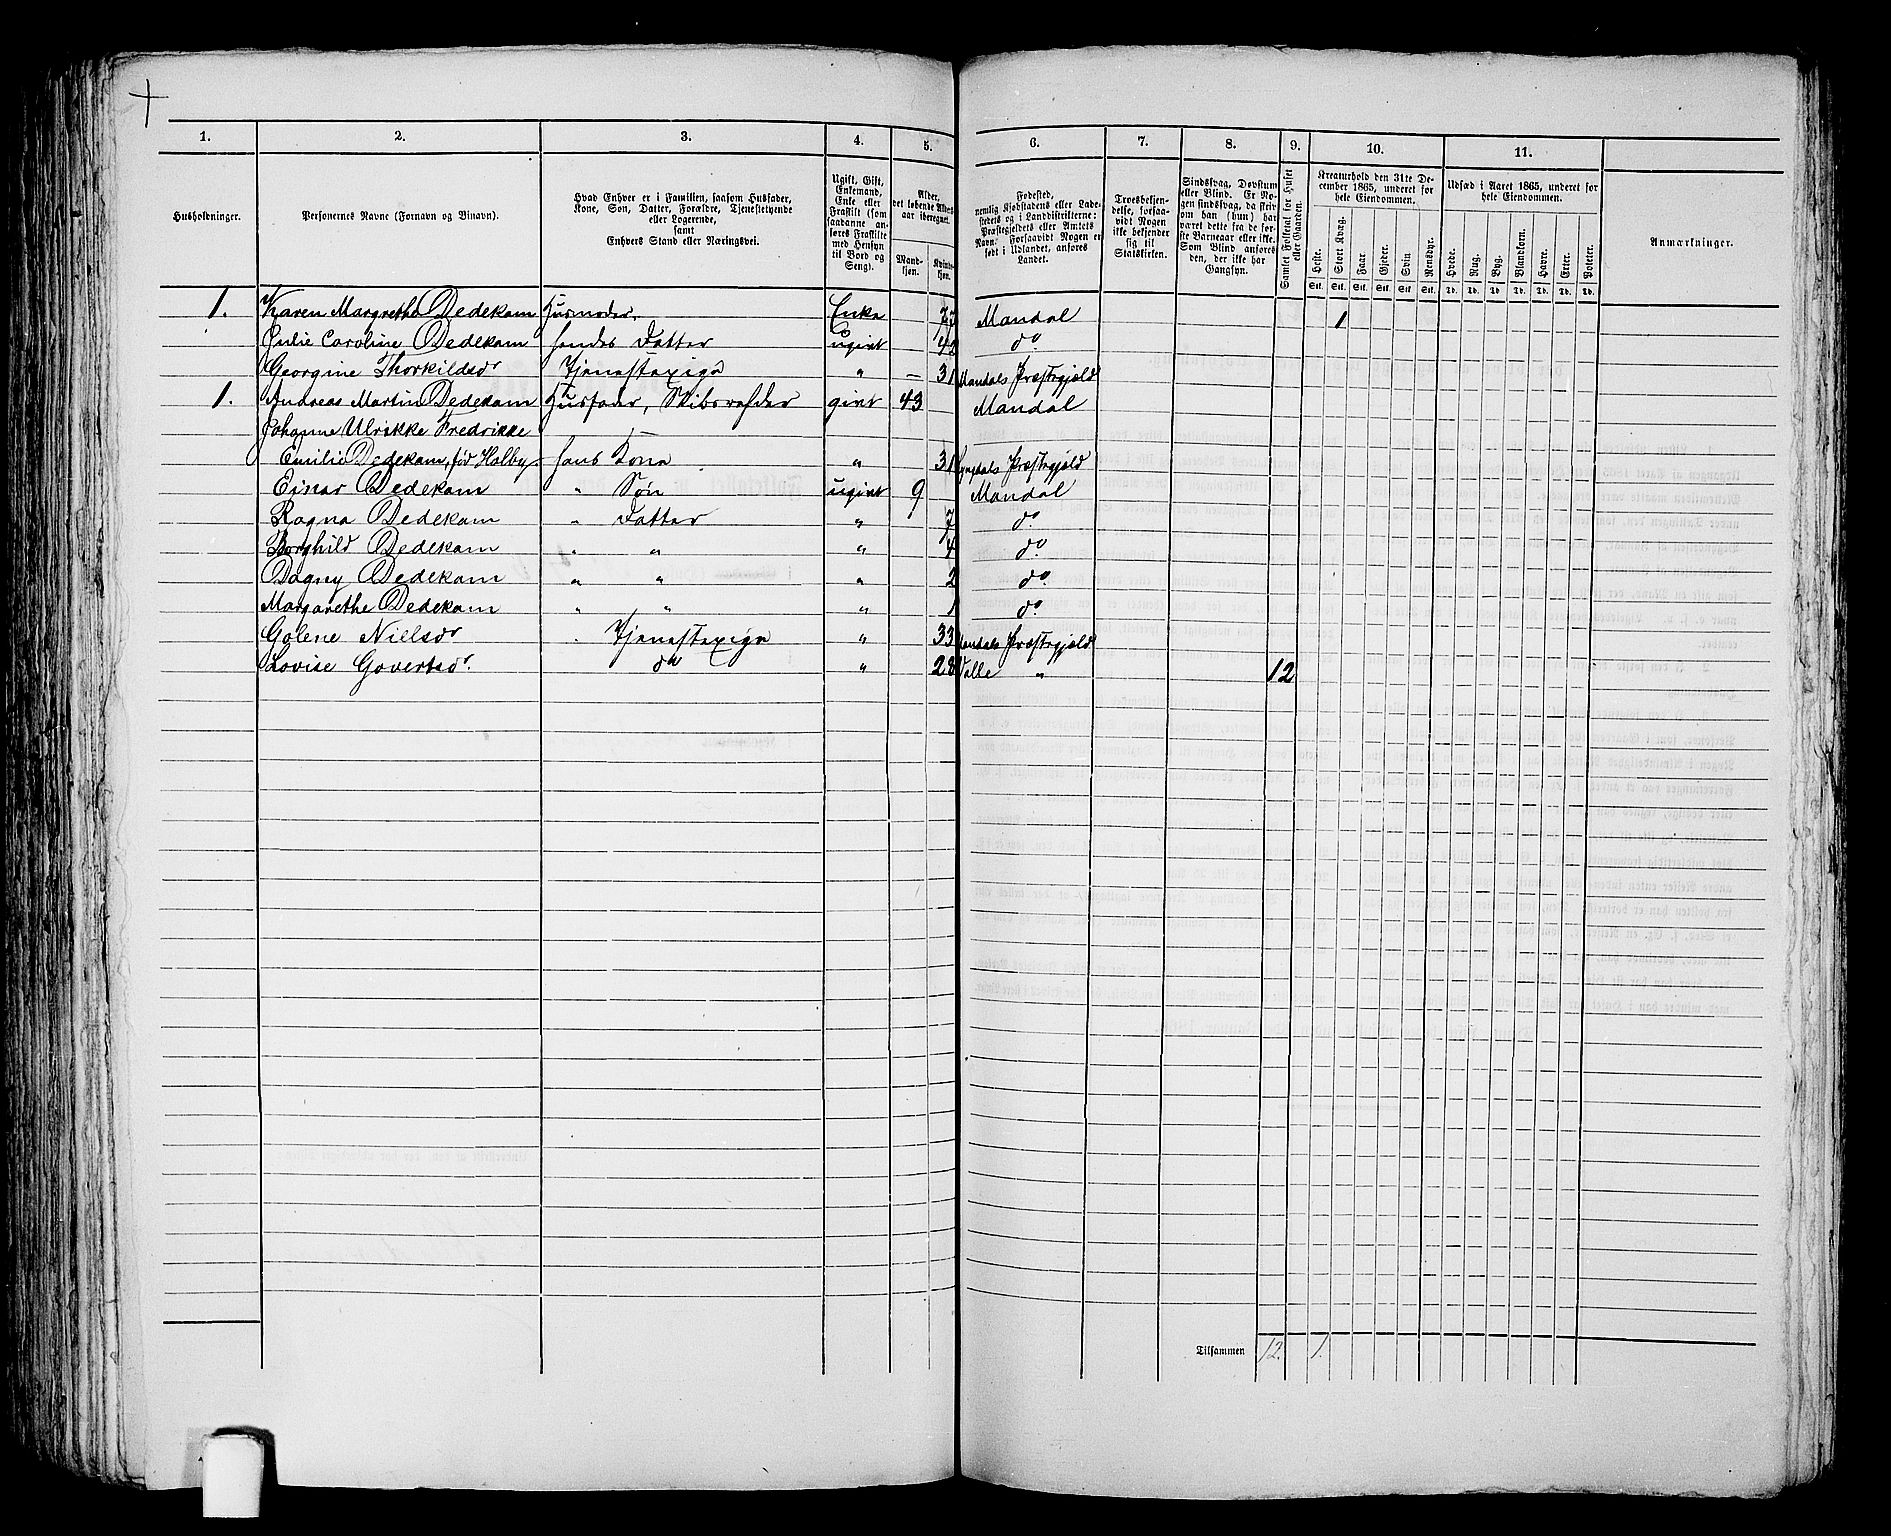 1. 2. 3. 4. 5. 6. 7. 8. 9. 10. 11.
Husholdninger.
Personernes Navne (Fornavn og Binavn).
Hvad Enhver er i Familien, saasom Husfader,
Kone, Søn, Datter, Forældre, Tjenestetyende
eller Logerende,
samt
Enhvers Stand eller Næringsvei.
Ugift, Gift,
Enkemand,
Enke eller
Fraskilt (som
saadanne an-
føres Fraskilte
med Hensyn
til Bord og
Seng).
Alder,
det løbende Alders-
aar iberegnet.
Mand-
kjøn.
Kvinde-
kjøn.
Fødested,
nemlig Kjøbstadens eller Lade-
stedets og i Landdistrikterne:
Præstegjeldets eller Amtets
Navn. Forsaavidt Nogen er
født i Udlandet, anføres
Landet.
Troesbekjen-
delse, forsaa-
vidt Nogen
ikke bekjender
sig til
Statskirken.
Sindssvag, Døvstum
eller Blind. Er No-
gen sindssvag, da skriv
om han (hun) har
været dette fra de før-
ste Barneaar eller ikke.
Som Blind anføres
den, der ikke har
Gangsyn.
Samlet Folketal for Huset
eller Gaarden.
Kreaturhold den 31te De-
cember 1865, underet for
hele Eiendommen.
Heste. Stort Kvæg. Faar. Gjeder. Svin Rensdyr.
Stk. Stk. Stk. Stk. Stk. Stk.
Udsæd i Aaret 1865, underet for
hele Eiendommen.
Hvede. Rug. Byg. Blandkorn. Havre. Erter. Poteter.
Td. Td. Td Td. Td. Td. Td.
Anmærkninger.
1. Karen Margrethe Dedekam Husmoder. Enke 77 Mandal 1
Julie Caroline Dedekam hendes Datter ugivt 42 do
Georgine Thorkildsdr Tjenestepige " — 31 Mandals Præstegjeld
1. Andreas Martin Dedekam Husfader, Skibsreder givt 43 Mandal
Johanne Ulrikke Fredrikke
Emilie Dedekam, fød Holby hans Kone " 31 Lyngdals Præstegjeld
Ejnar Dedekam " Søn ugivt 9 Mandal
Ragna Dedekam " Datter " 7 do
Borghild Dedekam " " " 4 do.
Dagny Dedekam " " " 2 do.
Margarethe Dedekam " " " 1 do.
Golene Nielsdr " Tjenestepige " 33 Mandals Præstegjeld
Lovise Govertsdr. do " 28 Valle " 12
Tilsammen 12. 1.